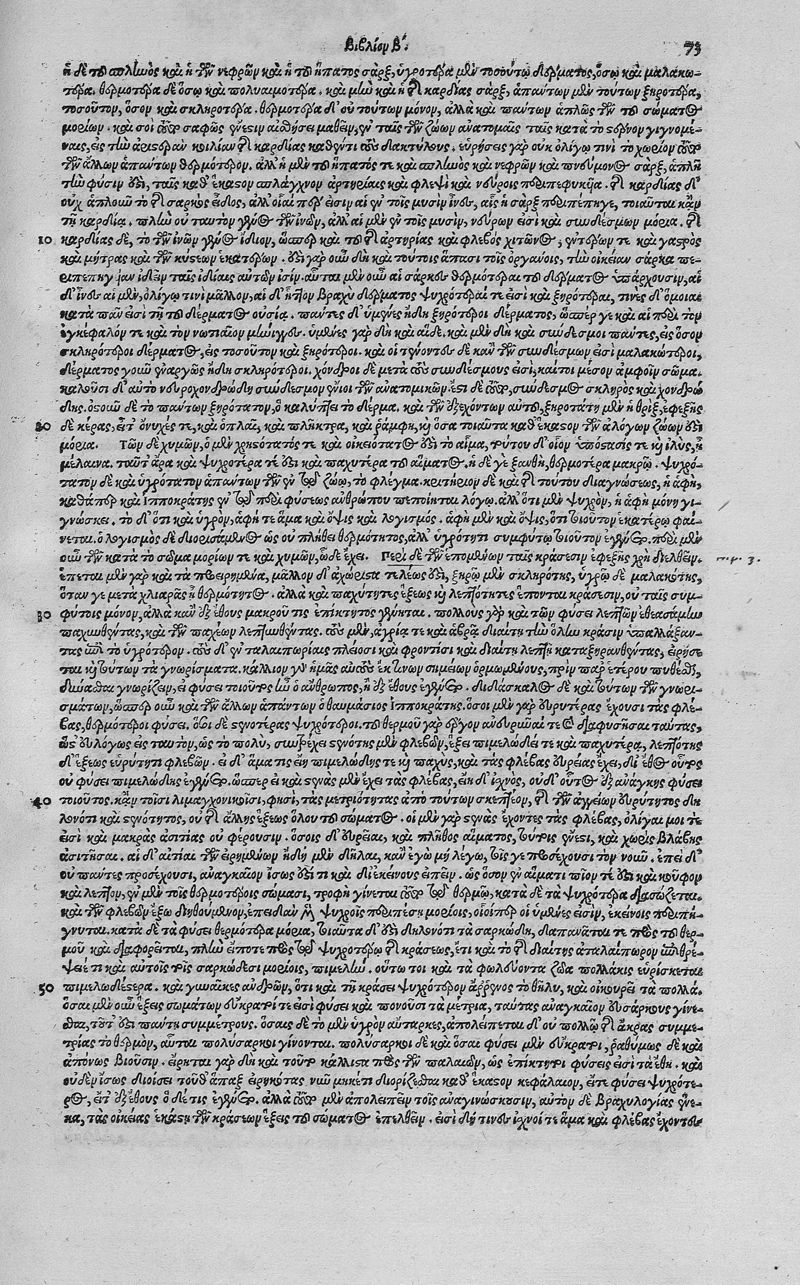 Βιβλίον Β΄. 73
ἡ δὲ τοῦ σπληνὸς καὶ ἡ τῶν νεφρῶν καὶ ἡ τοῦ ἥπατος σὰρξ, ὑγροτέρα μὲν τοσούτῳ δέρματος, ὅσῳ καὶ μαλακω-
τέρα. θερμοτέρα δὲ ὅσῳ καὶ πολυαιμοτέρα. καὶ μὴν καὶ ἡ τῆς καρδίας σὰρξ, ἁπάντων μὲν τούτων ξηροτέρα,
τοσοῦτον, ὅσον καὶ σκληροτέρα. θερμοτέρα δ' οὐ τούτων μόνον, ἀλλὰ καὶ πάντων ἁπλῶς τῶν τοῦ σώματος
μορίων. καὶ σοι τοῦτο σαφῶς ἔνεστιν αἰσθήσει μαθεῖν, ἐν ταῖς τῶν ζώων ἀνατομαῖς ταῖς κατὰ τὸ στέρνον γιγνομέ-
ναις, εἰς τὴν ἀριστερὰν κοιλίαν τῆς καρδίας καθέντι τοὺς δακτύλους. εὑρήσεις γὰρ οὐκ ὀλίγῳ τινὶ τὸ χωρίον τοῦτο
τῶν ἄλλων ἁπάντων θερμότερον. ἀλλ' ἡ μὲν τοῦ ἥπατός τε καὶ σπληνὸς καὶ νεφρῶν καὶ πνεύμονος σὰρξ, ἁπλῆ
τὴν φύσιν ἐστὶ, ταῖς καθ' ἕκαστον σπλάγχνον ἀρτηρίαις καὶ φλεψὶ καὶ νεύροις περιπεφυκῖα. τῆς καρδίας δ'
οὐχ ἁπλοῦν τὸ τῆς σαρκὸς εἶδος, ἀλλ' οἷαί πέρ εἰσιν αἱ ἐν τοῖς μυσὶν ἶνες, αἷς ἡ σὰρξ περιπέπηγε, τοιαῦται κἀν
τῇ καρδίᾳ. πλὴν οὐ ταυτὸν γένος τῶν ἰνῶν, ἀλλ' αἱ μὲν ἐν τοῖς μυσὶν, νεύρων εἰσὶ καὶ συνδέσμων μόρια. τῆς
10 καρδίας δὲ, τὸ τῶν ἰνῶν γένος ἴδιον, ὥσπερ καὶ τοῦ τῆς ἀρτηρίας καὶ φλεβὸς χιτῶνος, ἐντέρων τε καὶ γαστρὸς
καὶ μήτρας καὶ τῶν κύστεων ἑκατέρων. ἔστι γὰρ οὖν δὴ κἀν τούτοις ἅπασι τοῖς ὀργάνοις, τὴν οἰκείαν σάρκα πε-
ριπεπηγυῖαν ἰδεῖν ταῖς ἰδίαις αὐτῶν ἰσίν. αὗται μὲν οὖν αἱ σάρκες θερμότεραι τοῦ δέρματος ὑπάρχουσιν, αἱ
δ' ἶνες αἱ μὲν, ὀλίγῳ τινὶ μᾶλλον, αἱ δ' ἧττον βραχὺ δέρματος ψυχρότεραί τε εἰσὶ καὶ ξηρότεραι, τινὲς δ' ὅμοιαι
κατὰ πᾶν εἰσὶ τῇ τοῦ δέρματος οὐσίᾳ. πάντες δ' ὑμένες ἤδη ξηρότεροι δέρματος, ὥσπερ γε καὶ αἱ περὶ τὸν
ἐγκέφαλόν τε καὶ τὸν νωτιαῖον μήνιγγες. ὑμένες γὰρ δὴ καὶ αἵδε. καὶ μὲν δὴ καὶ σύνδεσμοι πάντες, εἰς ὅσον
σκληρότεροι δέρματος, εἰς τοσοῦτον καὶ ξηρότεροι. καὶ οἱ τένοντες δὲ κἂν τῶν συνδέσμων εἰσὶ μαλακώτεροι,
δέρματος γοῦν ἐναργῶς ἤδη σκληρότεροι. χόνδροι δὲ μετὰ τοὺς συνδέσμους εἰσὶ, καί τοι μέσον ἀμφοῖν σῶμα.
καλοῦσι δ' αὐτὸ νευροχονδρώδη σύνδεσμον ἔνιοι τῶν ἀνατομικῶν. ἔστι δὲ τοῦτο, σύνδεσμος σκληρὸς καὶ χονδρώ
δης. ὀστοῦν δὲ τὸ πάντων ξηρότατον, ὃ καλύπτει τὸ δέρμα. καὶ τῶν ἐξεχόντων αὐτοῦ, ξηροτάτη μὲν ἡ θρὶξ, ἐφεξῆς
20 δὲ κέρας, εἶτ' ὄνυχές τε, καὶ ὁπλαὶ, καὶ πλῆκτρα, καὶ ῥάμφη, καὶ ὅσα τοιαῦτα καθ' ἕκαστον τῶν ἀλόγων ζώων ἐστὶ
μόρια. Τῶν δὲ χυμῶν, ὁ μὲν χρηστότατός τε καὶ οἰκειότατος ἐστὶ τὸ αἷμα, τούτου δ' οἷον ὑπόστασίς τε καὶ ἰλὺς, ἡ
μέλαινα. ταῦτ' ἄρα καὶ ψυχροτέρα τε ἐστὶ καὶ παχυτέρα τοῦ αἵματος. ἡ δέ γε ξανθὴ, θερμοτέρα μακρῷ. ψυχρό-
τατον δὲ καὶ ὑγρότατον ἁπάντων τῶν ἐν τῷ ζώῳ, τὸ φλέγμα. κριτήριον δὲ καὶ τῆς τούτου διαγνώσεως, ἡ ἁφὴ,
καθάπερ καὶ Ἱπποκράτης ἐν τῷ περὶ φύσεως ἀνθρώπου πεποίηται λόγῳ. ἀλλ' ὅτι μὲν ψυχρὸν, ἡ ἁφὴ μόνη γι-
γνώσκει. τὸ δ' ὅτι καὶ ὑγρὸν, ἁφή τε ἅμα καὶ ὄψις καὶ λογισμός. ἁφὴ μὲν καὶ ὄψις, ὅτι τοιοῦτον ἑκατέρῳ φαί-
νεται. ὁ λογισμὸς δὲ διορισάμενος ὡς οὐ πλήθει θερμότητος, ἀλλ' ὑγρότητι συμφύτῳ τοιοῦτο ἐγένετο. περὶ μὲν
οὖν τῶν κατὰ τὸ σῶμα μορίων τε καὶ χυμῶν, ὧδε ἔχει. Περὶ δὲ τῶν ἑπομένων ταῖς κράσεσιν ἐφεξῆς χρὴ διελθεῖν.
ἕπεται μὲν γὰρ καὶ τὰ προειρημένα, μᾶλλον δ' ἀχώριστα τελέως ἐστὶ, ξηρῷ μὲν σκληρότης, ὑγρῷ δὲ μαλακότης,
ὅταν γε μετὰ χλιαρᾶς ᾖ θερμότητος. ἀλλὰ καὶ παχύτητες ἕξεως καὶ λεπτότητες ἕπονται κράσεσιν, οὐ ταῖς συμ-
30 φύτοις μόνον, ἀλλὰ κἂν ἐξ ἔθους μακροῦ τις ἐπίκτητος γένηται. πολλοὺς γὰρ καὶ τῶν φύσει λεπτῶν ἐθεασάμην
παχυνθέντας, καὶ τῶν παχέων λεπτυνθέντας. τοὺς μὲν, ἀργίᾳ τε καὶ ἁβρᾷ διαίτῃ τὴν ὅλην κρᾶσιν ὑπαλλάξαν-
τας ἐπὶ τὸ ὑγρότερον. τοὺς δ' ἐν ταλαιπωρίαις πλείοσι καὶ φροντίσι καὶ διαίτῃ λεπτῇ καταξηρανθέντας. εἰρήσε
ται καὶ τούτων τὰ γνωρίσματα. κάλλιον γὰρ ἡμᾶς αὐτοὺς ἔκ τινων σημείων ὁρμωμένους, πρὶν παρ' ἑτέρου πυθέσθαι,
δύνασθαι γνωρίζειν, εἰ φύσει τοιοῦτος ἦν ὁ ἄνθρωπος, ἢ ἐξ ἔθους ἐγένετο. διδάσκαλος δὲ καὶ τούτων τῶν γνωρι-
σμάτων, ὥσπερ οὖν καὶ τῶν ἄλλων ἁπάντων ὁ θαυμάσιος Ἱπποκράτης. ὅσοι μὲν γὰρ εὐρυτέρας ἔχουσι τὰς φλέ-
βας, θερμότεροι φύσει. ὅσοι δὲ στενοτέρας ψυχρότεροι. τοῦ θερμοῦ γὰρ ἔργον ἀνευρῦναί τε καὶ διαφυσῆσαι ταύτας,
ὥστ' εὐλόγως εἰς ταυτὸν, ὡς τὸ πολὺ, συντρέχει στενότης μὲν φλεβῶν, ἕξει πιμελώδει τε καὶ παχυτέρᾳ, λεπτότης
δ' ἕξεως εὐρύτητι φλεβῶν. εἰ δ' ἅμα τις εἴη πιμελώδης τε καὶ παχὺς, καὶ τὰς φλέβας εὐρείας ἔχει, δι' ἔθος οὗτος
οὐ φύσει πιμελώδης ἐγένετο, ὥσπερ εἰ καὶ στενὰς μὲν ἔχει τὰς φλέβας, εἴη δ' ἰσχνὸς, οὐδ' οὗτος ἐξ ἀνάγκης φύσει
40 τοιοῦτος. κἀν τοῖσι λιμαγχονικοῖσι, φησὶ, τὰς μετριότητας ἀπὸ τούτων σκεπτέον, τῆς τῶν ἀγγείων εὐρύτητος δη
λονότι καὶ στενότητος, οὐ τῆς ἄλλης ἕξεως ὅλου τοῦ σώματος. οἱ μὲν γὰρ στενὰς ἔχοντες τὰς φλέβας, ὀλίγαιμοί τε
εἰσὶ καὶ μακρὰς ἀσιτίας οὐ φέρουσιν. ὅσοις δ' εὐρεῖαι, καὶ πλῆθος αἵματος, τούτοις ἔνεστι, καὶ χωρὶς βλάβης
ἀσιτῆσαι. αἱ δ' αἰτίαι τῶν εἰρημένων ἤδη μὲν δῆλαι, κἂν ἐγὼ μὴ λέγω, τοῖς γε προσέχουσι τὸν νοῦν. ἐπεὶ δ'
οὐ πάντες προσέχουσι, ἀναγκαῖον ἴσως ἐστί τι καὶ δι' ἐκείνους εἰπεῖν. ὡς ὅσον ἐν αἵματι πῖον τέ ἐστι καὶ κοῦφον
καὶ λεπτὸν, ἐν μὲν τοῖς θερμοτέροις σώμασι, τροφὴ γίνεται τοῦτο τῷ θερμῷ, κατὰ δὲ τὰ ψυχρότερα διασῴζεται.
καὶ τῶν φλεβῶν ἔξω διηθούμενον, ἐπειδὰν μὲν ψυχροῖς περιπέσῃ μορίοις, οἷοί περ οἱ ὑμένες εἰσὶν, ἐκείνοις περιπή-
γνυται. κατὰ δὲ τὰ φύσει θερμότερα μόρια, τοιαῦτα δ' ἐστὶ δηλονότι τὰ σαρκώδη, δαπανᾶται τε πρὸς τοῦ θερ-
μοῦ καὶ διαφορεῖται, πλὴν εἴ ποτε πρὸς τῷ ψυχροτέρῳ τῆς κράσεως, ἔτι καὶ τὸ τῆς διαίτης ἀταλαίπωρον ἐπιθρέ-
ψειέ τι καὶ αὐτοῖς τοῖς σαρκώδεσι μορίοις, πιμελήν. οὕτω τοι καὶ τὰ φωλεύοντα ζῶα πολλάκις εὑρίσκεται
50 πιμελωδέστερα. καὶ γυναῖκες ἀνδρῶν, ὅτι καὶ τῇ κράσει ψυχρότερον ἄρρενος τὸ θῆλυ, καὶ οἰκουρεῖ τὰ πολλά.
ὅσαι μὲν οὖν ἕξεις σωμάτων εὔκρατοί τε εἰσὶ φύσει καὶ πονοῦσι τὰ μέτρια, ταύτας ἀναγκαῖον εὐσάρκους γίνε-
σθαι, τοῦτ' ἔστι πάντη συμμέτρους. ὅσαις δὲ τὸ μὲν ὑγρὸν αὔταρκες, ἀπολείπεται δ' οὐ πολλῷ τῆς ἄκρας συμμε-
τρίας τὸ θερμὸν, αὗται πολύσαρκοι γίνονται. πολύσαρκοι δὲ καὶ ὅσαι φύσει μὲν εὔκρατοι, ῥαθύμως δὲ καὶ
ἀπόνως βιοῦσιν. εἴρηται γὰρ δὴ καὶ τοῦτο κάλλιστα πρὸς τῶν παλαιῶν, ὡς ἐπίκτητοι φύσεις εἰσὶ τὰ ἔθη. καὶ
οὐδὲν ἴσως διοίσει τοῦθ' ἅπαξ εἰρηκότας νῦν μηκέτι διορίζεσθαι καθ' ἕκαστον κεφάλαιον, εἴτε φύσει ψυχρότε-
ρος, εἴτ' ἐξ ἔθους ὁ δέ τις ἐγένετο. ἀλλὰ τοῦτο μὲν ἀπολείπειν τοῖς ἀναγινώσκουσιν, αὐτὸν δὲ βραχυλογίας ἕνε-
κα, τὰς οἰκείας ἑκάστῃ τῶν κράσεων ἕξεις τοῦ σώματος ἐπελθεῖν. εἰσὶ δή τινες ἰσχνοί τε ἅμα καὶ φλέβας ἔχοντες